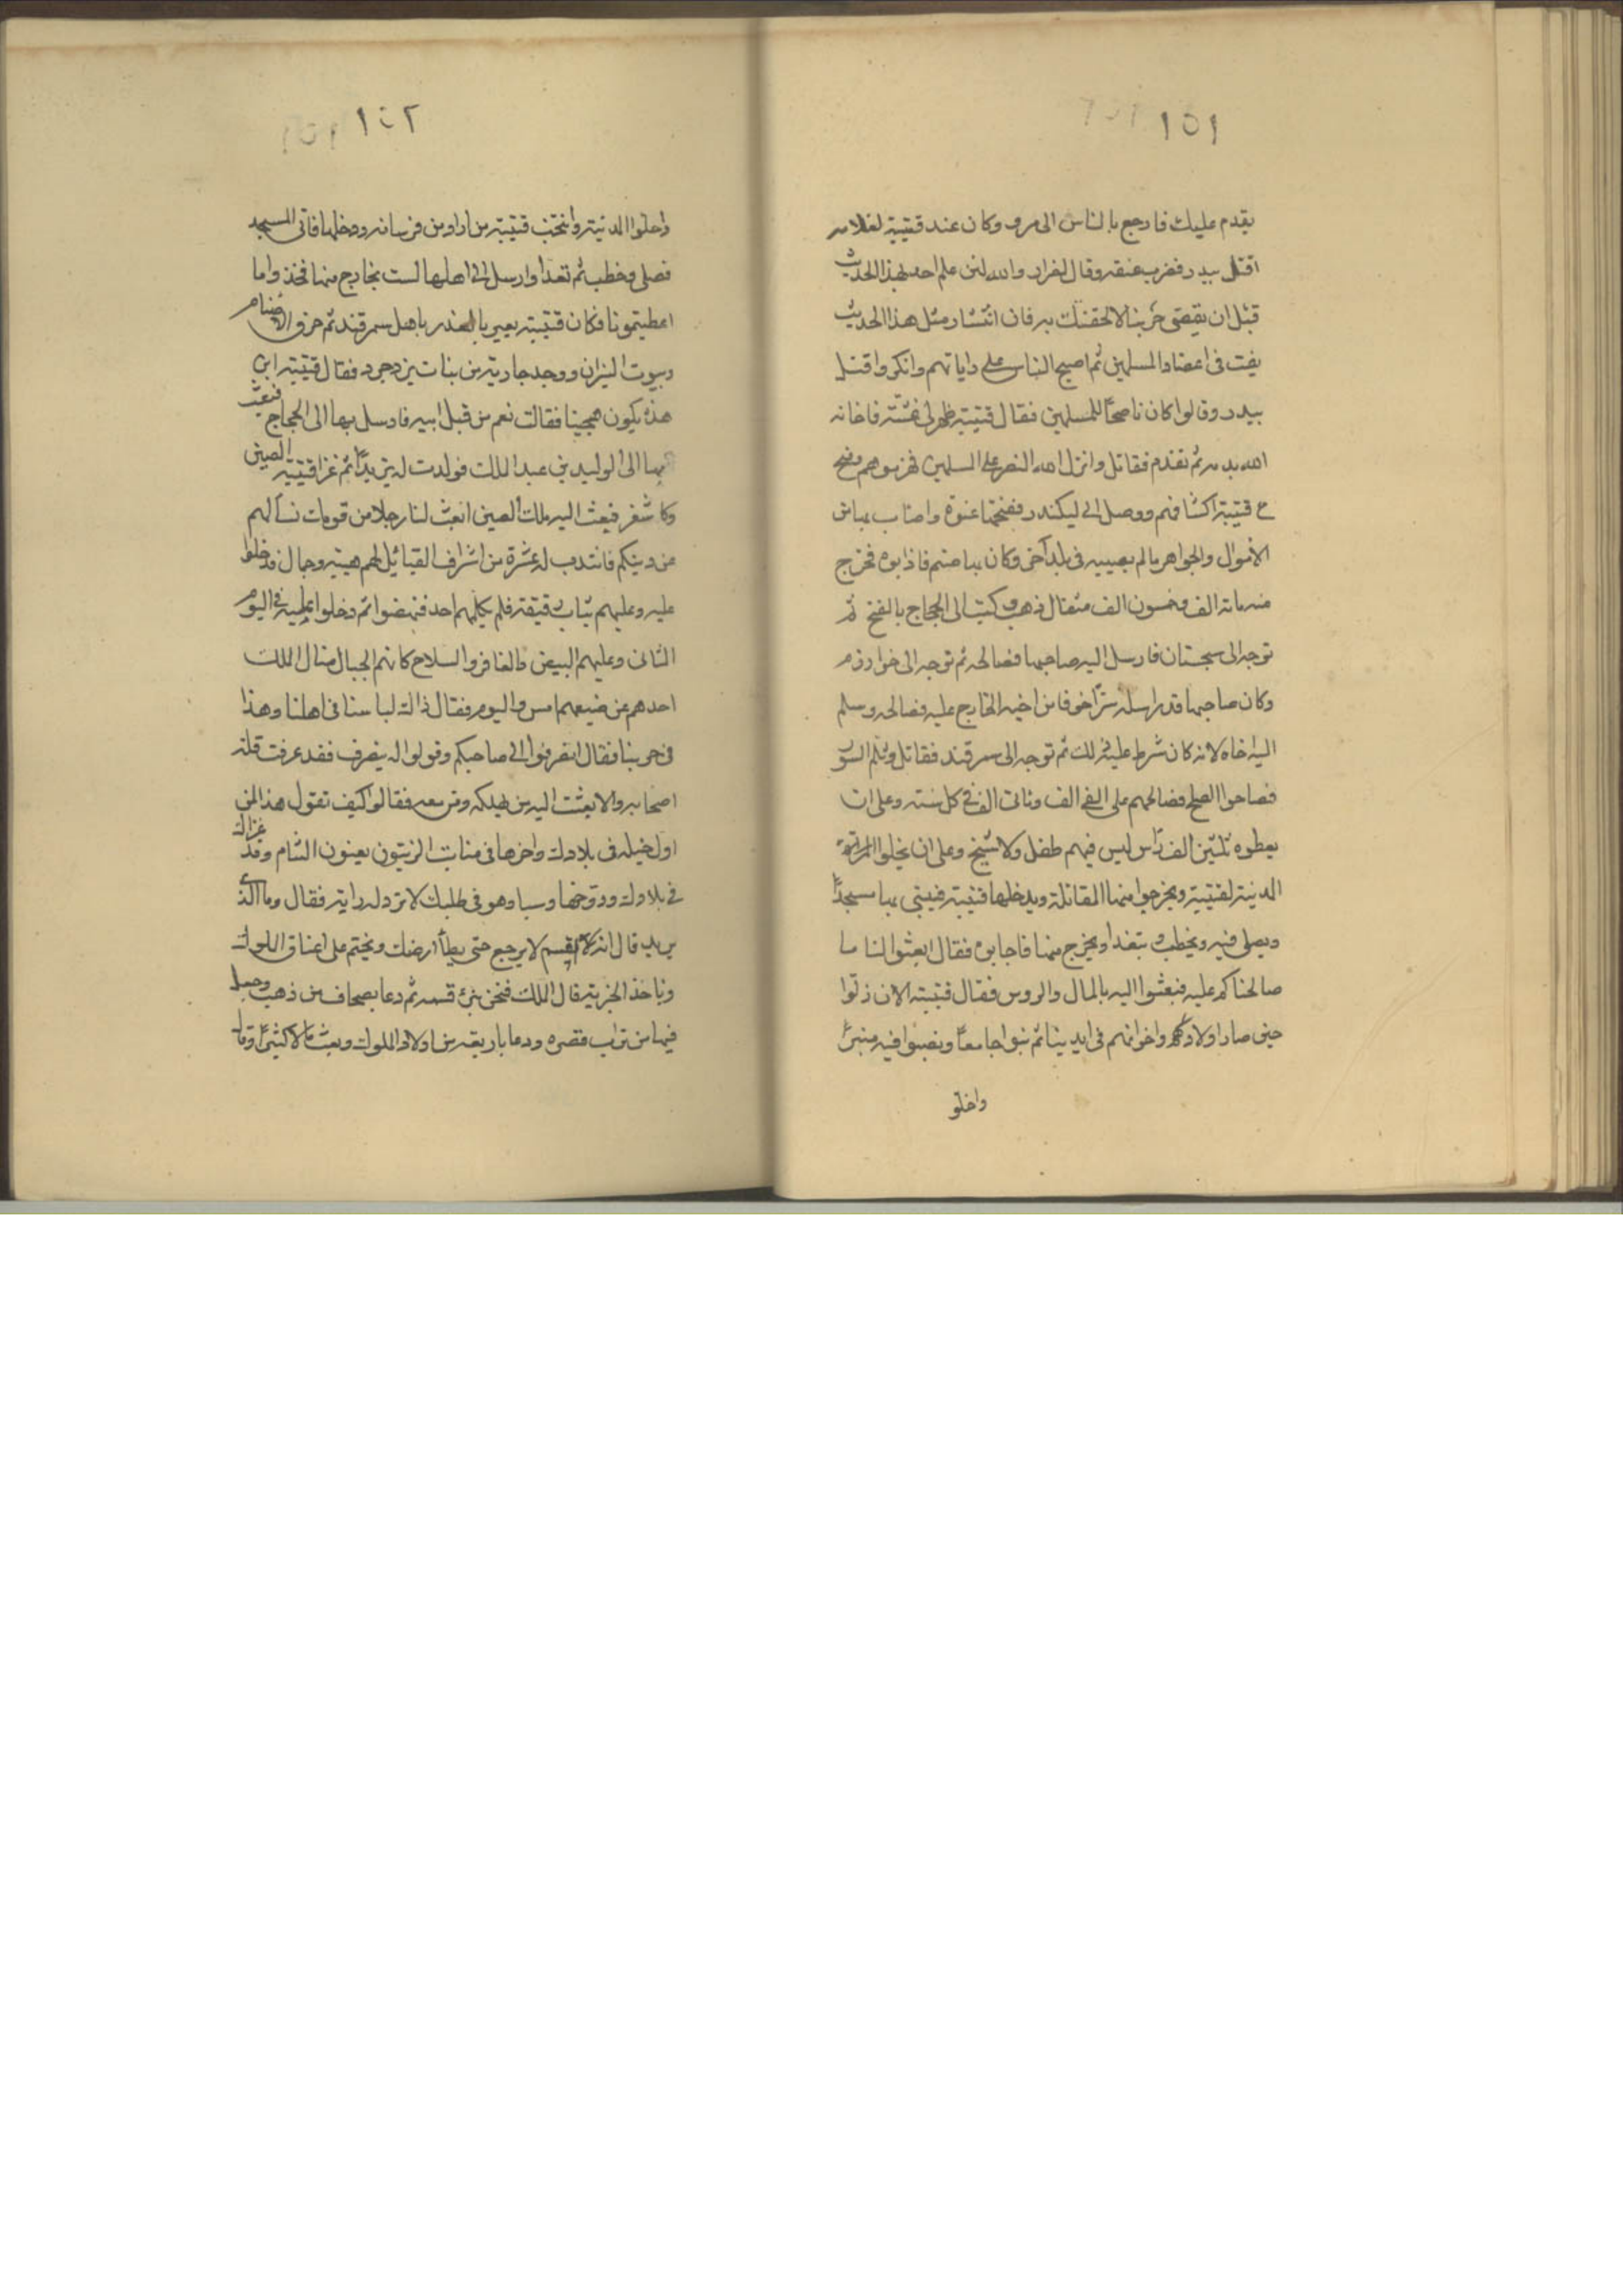 ١٥١
يقدم عليك فارجع بالناس الى مرو وكان عند قتيبة لغلامه
اقتل بيدر فضرب عنقه وقال لضرار والله لئن علم احد بهذا الحديث
قبل ان يقضى حربنا لالحقنك به فان انتشار مثل هذا الحديث
يفت فى اعضاد المسلمين ثم اصبح الناس على راياتهم وانكروا قتل
بيدر وقالوا كان ناصحًا للمسلمين فقال قتيبة ظهر لى غشه فاخانه
الله بدمه ثم تقدم فقاتل وانزل الله النصر على المسلمين فهزموهم
قتيبة ووصل الى ليكندر ففتحها عنوة واصاب بها من
الاموال والجواهر مالم يصيبه فى بلد آخر وكان بها صنم فاذابوه فخرج
منه مائة الف وخمسون الف مثقال ذهب وكتب الى الحجاج بالفتح ثم
توجه الى سجستان فارسل اليه صاحبها فصالحه ثم توجه الى خوارزم
وكان صاحبها قد راسله سرًّا خوفا من اخيه الخارج عليه فصالحه وسلم
اليه اخاه لانه كان شرط عليه ذلك ثم توجه الى سمرقند فقاتل وثلم السور
فصاحوا الصلح فصالحهم على الفى الف ومائتى الف فى كل سنة وعلى ان
يعطوه ثلثين الف راس ليس فيهم طفل ولا شيخ وعلى ان يخلوا
المدينة لقتيبة ويخرجوا منها المقاتلة ويدخلها قتيبة فيبنى بها مسجدًا
ويصلى فيه ويخطب ويتغدا ويخرج منها فاجابوه فقال ابعثوا لنا ما
صالحناكم عليه فبعثوا اليه بالمال والروس فقال قتيبة الان ذلوا
حين صار اولادهم واخوانهم فى ايدينا ثم بنوا جامعًا ونصبوا فيه منبرًا
واخلو
١٥٢
واخلوا المدينة وانتخب قتيبة من اراد من فرسانه ودخلها فاتى المسجد
فصلى وخطب ثم تغدا وارسل الى اهلها لست بخارج منها فخذوا ما
اعطيتمونا فكان قتيبة يعير بالغدر باهل سمرقند ثم حرق الاصنام
وبيوت النيران ووجد جارية من بنات يزدجرد فقال قتيبة ابن
هذه يكون هجينا فقالت نعم من قبل ابيه فارسل بها الى الحجاج فبعث
بها الى الوليد بن عبد الملك فولدت له يزيدًا ثم غزا قتيبة الصين
وكاشغر فبعث اليه ملك الصين ابعث لنا رجلا من قومك نسألهم
عن دينكم فانتدب له عشرة من اشراف القبائل لهم هيبة وجمال فدخلوا
عليه وعليهم ثياب رقيقة فلم يكلمهم احد فنهضوا ثم دخلوا عليه فى اليوم
الثانى وعليهم البيض والمغافر والسلاح كانهم الجبال فسال الملك
احدهم عن صنيعهم امس واليوم فقال ذاك لباسنا فى اهلنا وهذا
فى حربنا فقال انصرفوا الى صاحبكم وقولوا له ينصرف فقد عرفت قلة
اصحابه والا بعثت اليه من يهلكه ومن معه فقالوا كيف تقول هذا لمن
اول خيله فى بلادك واخرها فى منابت الزيتون يعنون الشام وقد غزاك
فى بلادك ودوخها وسبا وهو فى طلبك لا ترد له راية فقال وما الذى
يريد قال انه اقسم لا يرجع حتى يطأ ارضك ويختم على اعناق الملوك
وياخذ الجزية قال الملك فنحن نبرئ قسمه ثم دعا بصحاف من ذهب وجعل
فيها من تراب قصره ودعا باربعة من اولاد الملوك وبعث مالا كثيرًا وقال